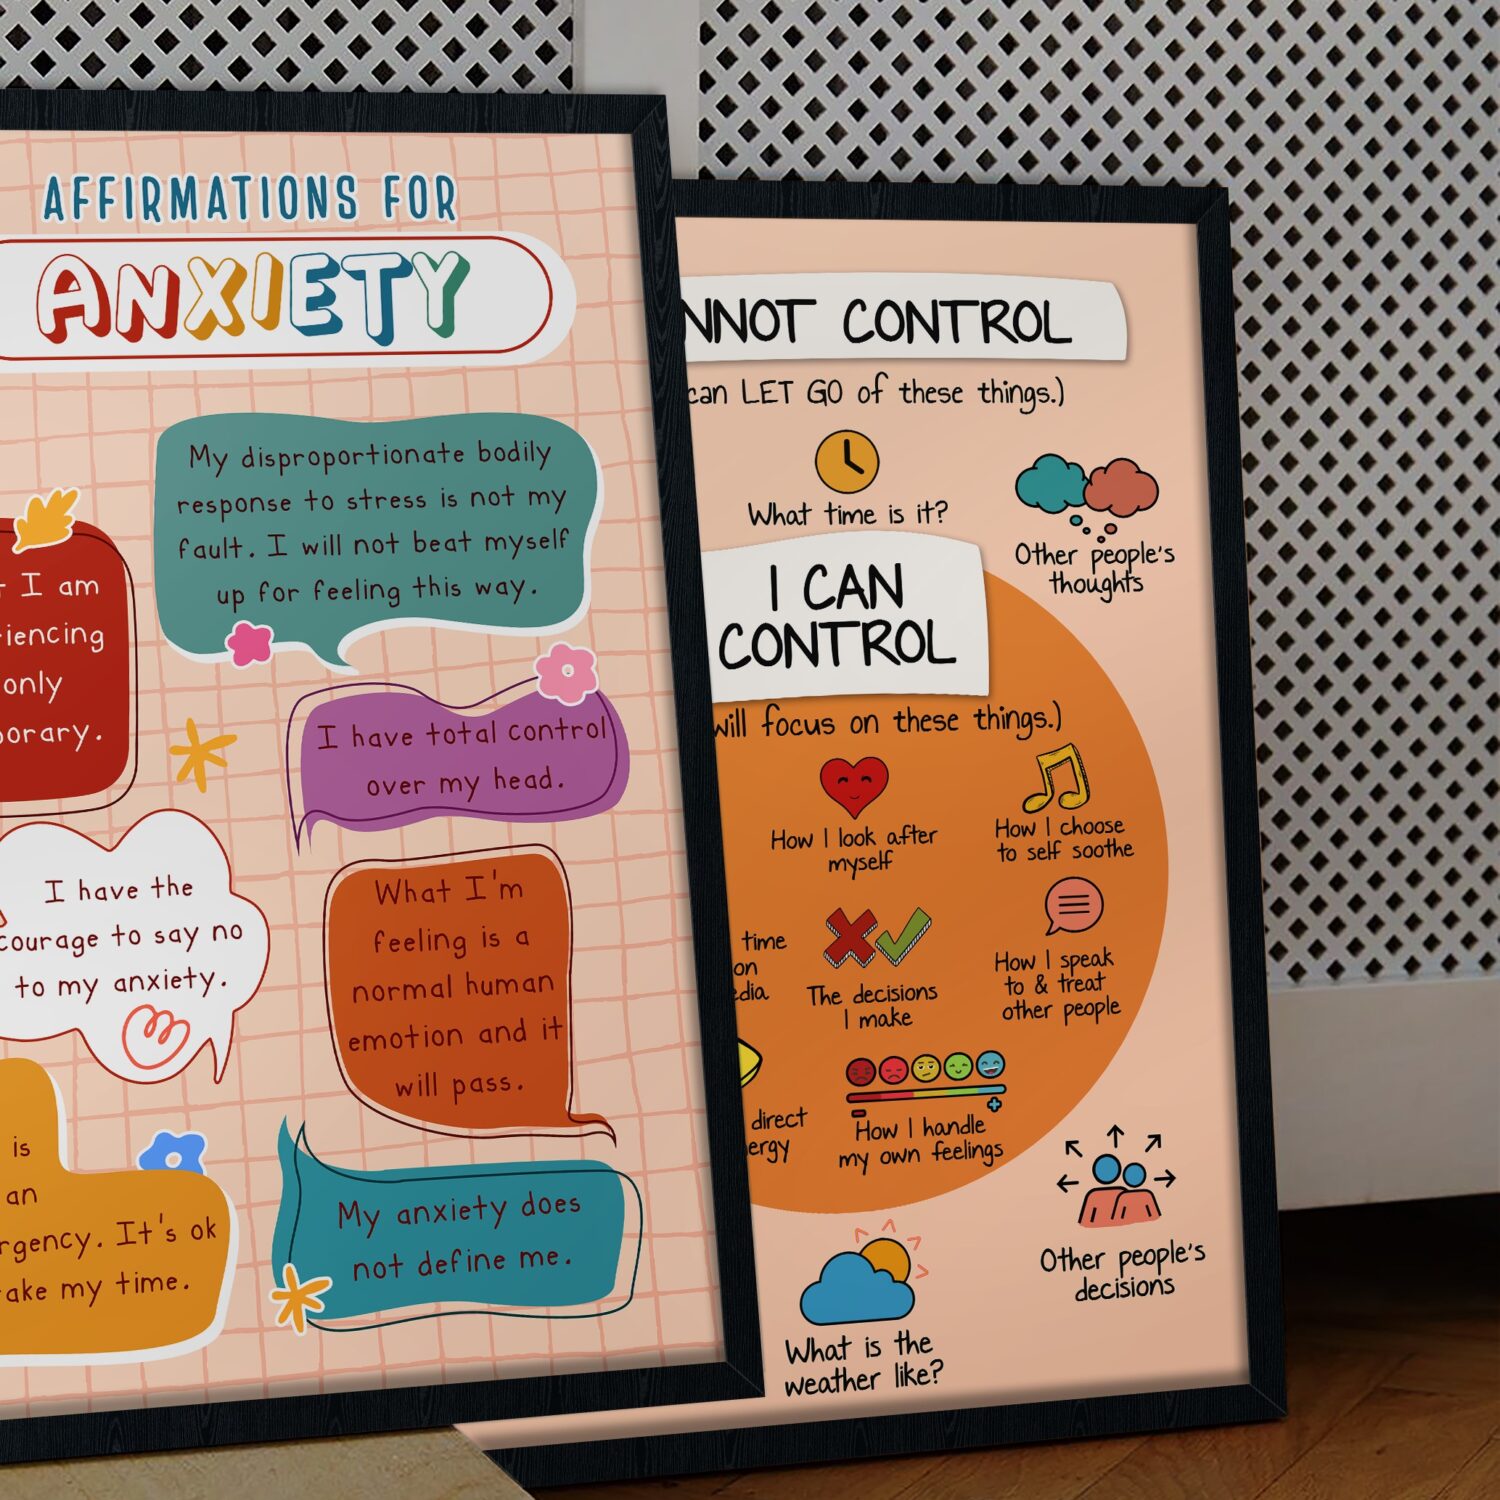 AFFIRMATIONS FOR
ANXIETY
My disproportionate bodily
response to stress is not my
fault. I will not beat myself
up for feeling this way.
I am
only
I have total control
over my head.
I have the
courage to say no
to my anxiety.
What I'm
feeling is a
normal human
emotion and it
will pass.
is
an
It's ok
my time.
My anxiety does
not define me.
CONTROL
can LET GO of these things.)
What time is it?
Other people's
thoughts
I CAN
CONTROL
will focus on these things.)
How I look after
myself
How I choose
to self soothe
time
on
The decisions
I make
How I speak
to & treat
other people
direct
How I handle
my own feelings
Other people's
decisions
What is the
weather like?